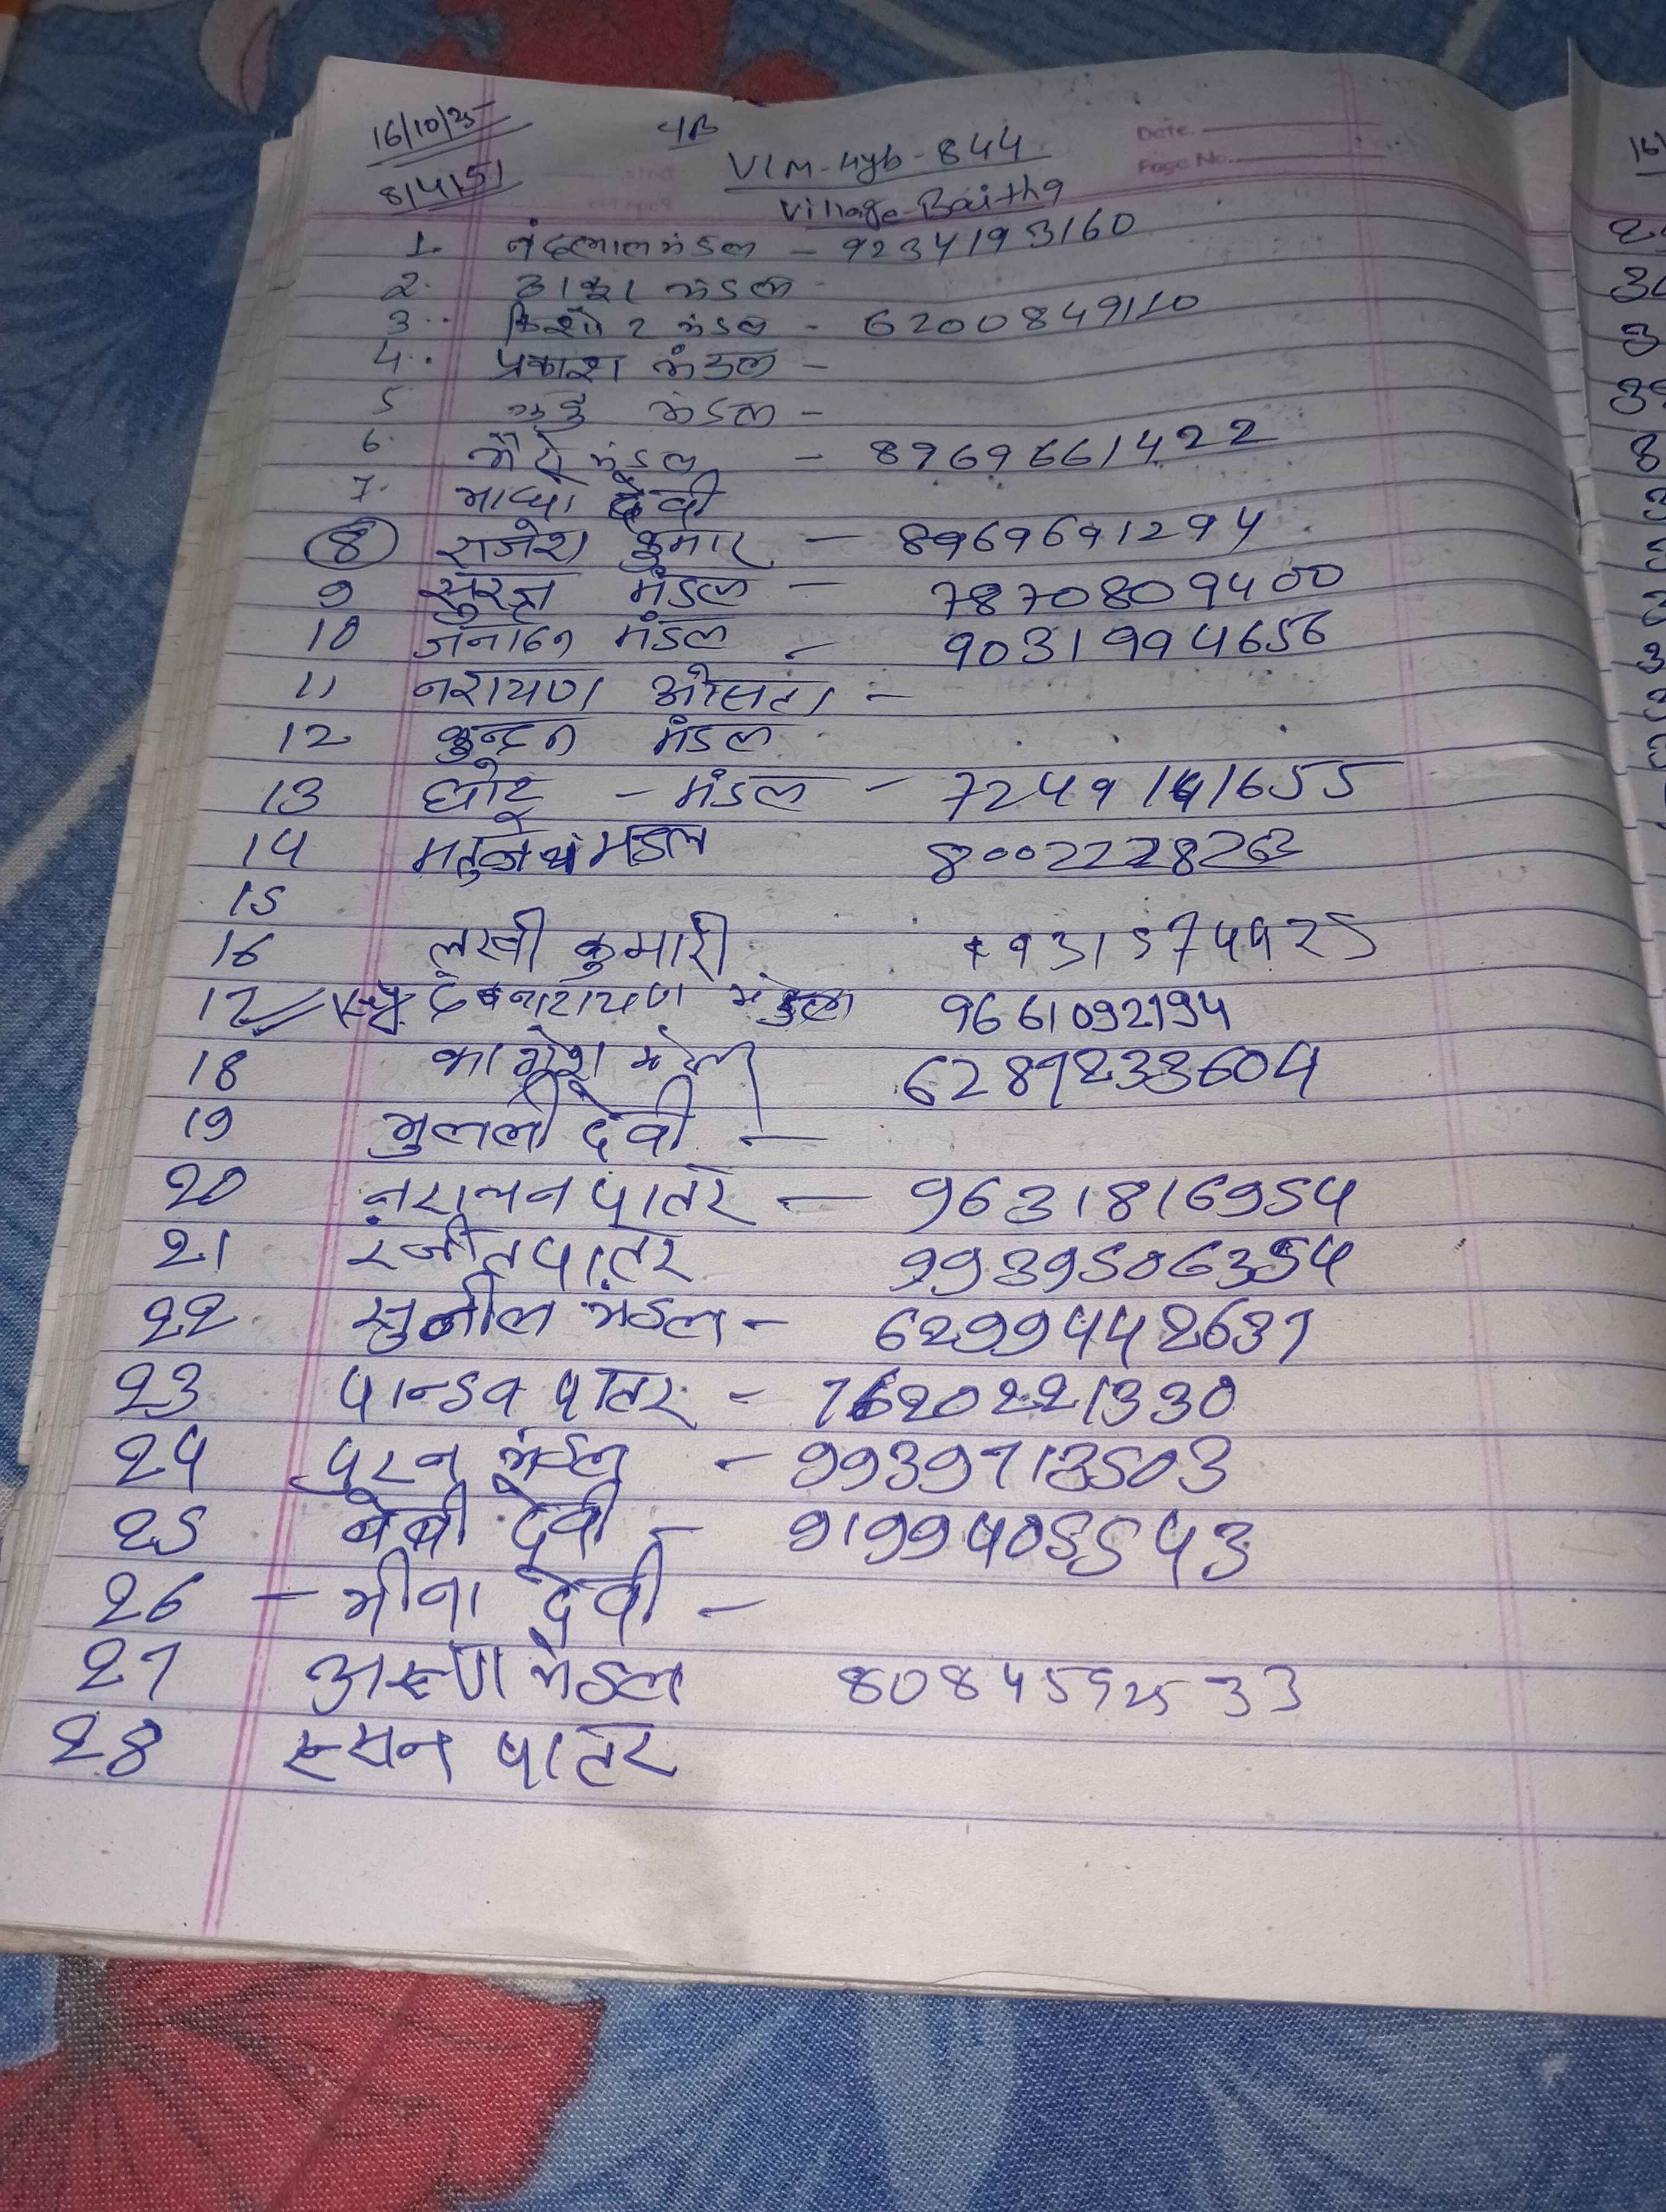 16/10/25 4B Date.
814151 VLM-Hyb-844 Page No.
Village-Baitha
1. नंदलाल मंडल - 9234193160
2. ठाकुर मंडल -
3. किशोर मंडल - 6200849110
4. प्रकाश मंडल -
5 मंडल -
6. भैरो मंडल - 8969661422
7. माधो देवी
8 राजेश कुमार - 8969691294
9 सुरज मंडल - 7870809400
10 जनार्दन मंडल - 9031994656
11 नरायण -
12 कुन्दन मंडल
13 छोटू - मंडल - 7249141655
14 मंडल 8002228263
15
16 लखी कुमारी 9315749925
17 देवनारायण मंडल 9661092194
18 6289233604
19 देवी -
20 पातर - 9631816954
21 रंजीत पातर 9939506354
22 सुनील मंडल - 6299442631
23 पान्डव पातर - 7620221330
24 पुरन मंडल - 9939713503
25 बेबी देवी - 9199405543
26 - मीना देवी -
27 अरूण मंडल 8084592533
28 पातर